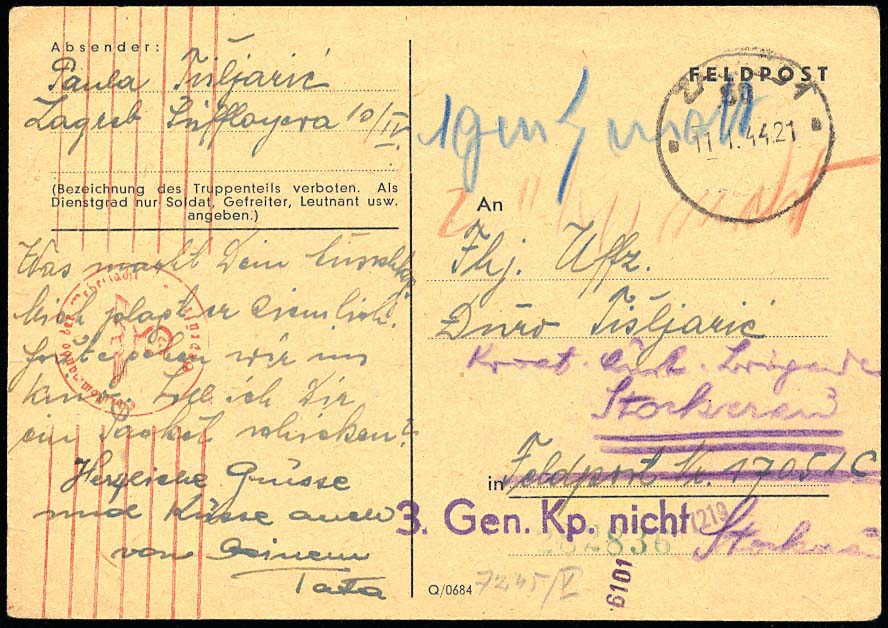 Absender:
Paula Tišljarić
Zagreb Šufflayeva 10/IV.
(Bezeichnung des Truppenteils verboten. Als
Dienstgrad nur Soldat, Gefreiter, Leutnant usw.
angeben.)
Was macht Dein
Mich plagt er ziemlich.
Heute gehen wir ins
Kino. Soll ich Dir
ein Packet schicken?
Herzliche Grüsse
und Küsse auch
von Deinem
Tata
FELDPOST
11.1.44.21
An
Fhj. Uffz.
Đuro Tišljarić
Kroat. Brigade
Stockerau
in Feldpost Nr. 17051 C
3. Gen. Kp. nicht
1219
282836
Stockerau
Q/0684
7245/V
6101